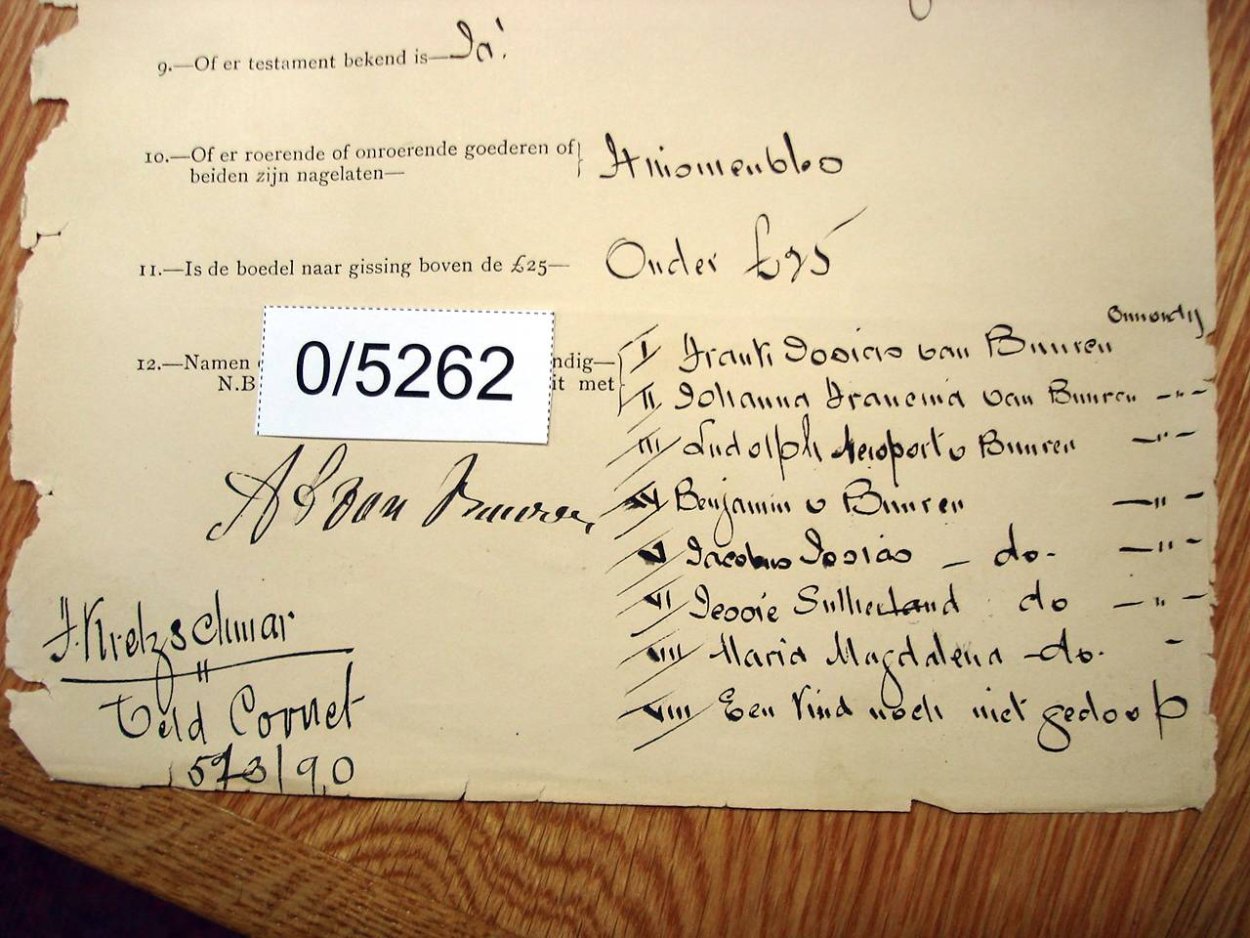 9.—Of er testament bekend is— Ja!
10.—Of er roerende of onroerende goederen of
beiden zijn nagelaten—
11.—Is de boedel naar gissing boven de £25— Onder £25
Onmondig
12.—Namen ndig— I Frank Josias van Buuren
N.B it met II Johanna Francina van Buuren —"—
0/5262
III Ludolph v Buuren —"—
IV Benjamin v Buuren —"—
V Jacobus Josias — do. —"—
VI Jessie Sutherland do —"—
VII Maria Magdalena —do. -
VIII Een Kind noch niet gedoopt
van Buuren
F. Kretzschmar
Veld Cornet
5/3/90